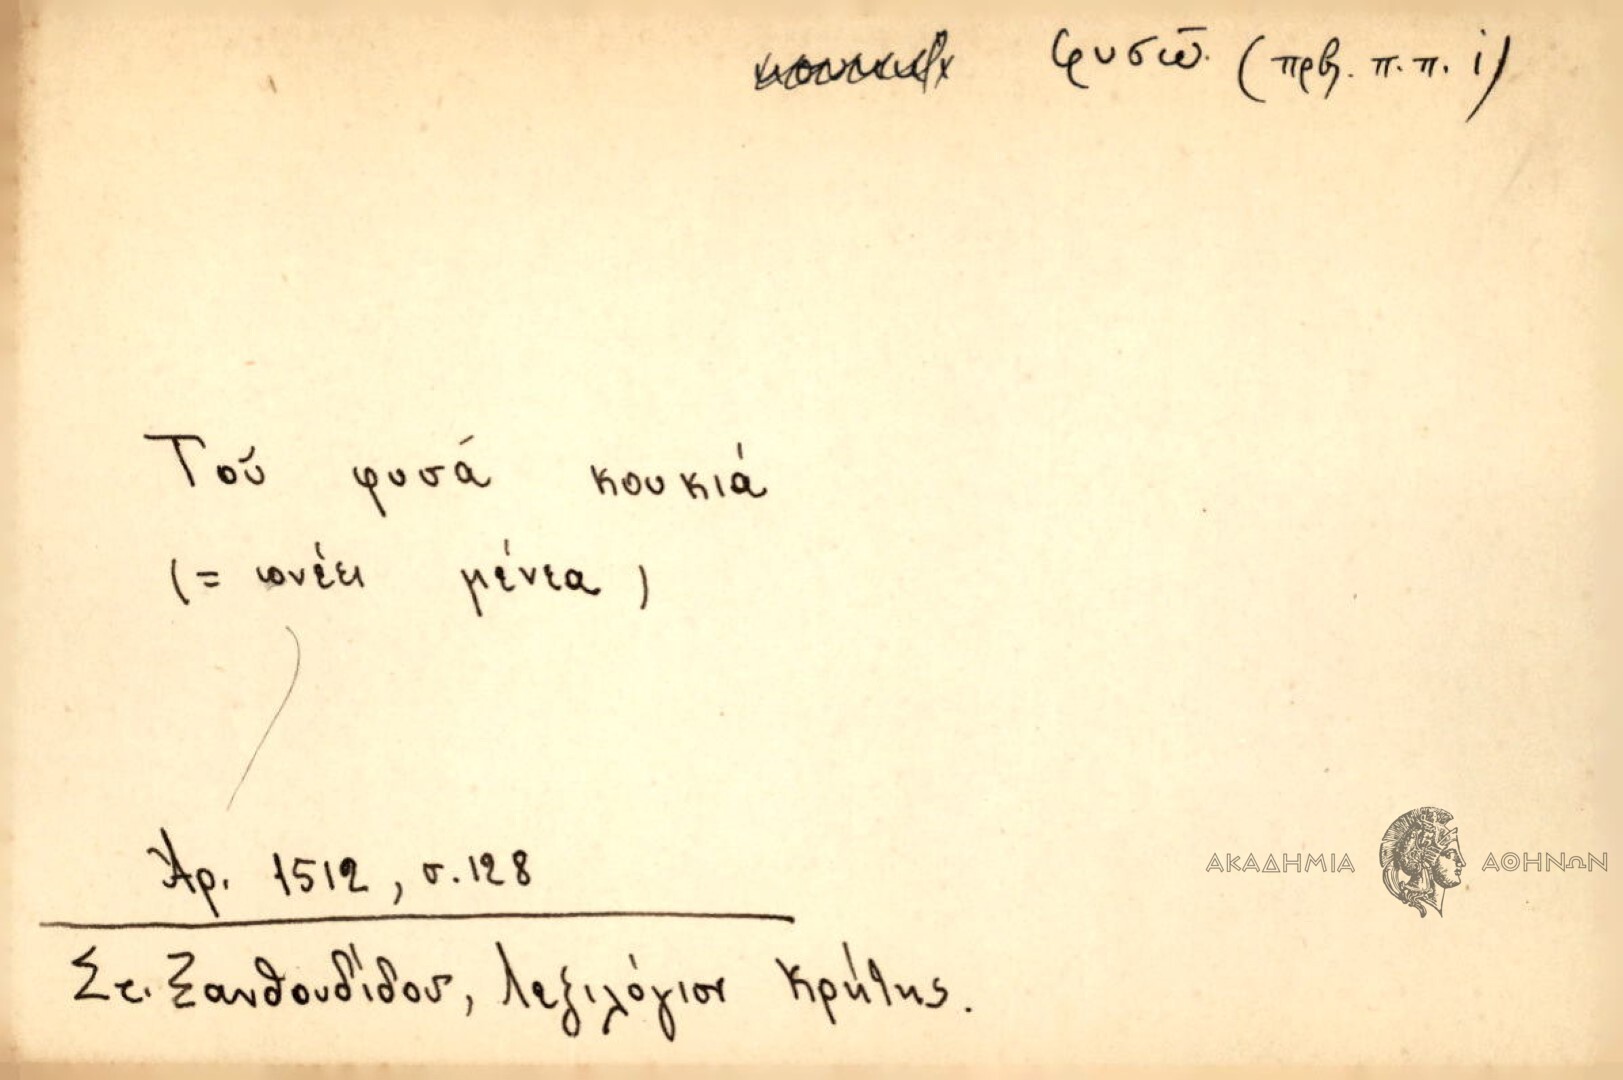 φυσῶ. (πρβ. π.π. i)
Τοῦ φυσά κουκιά
(= πνέει μένεα)
Ἀρ. 1512, σ. 128
Στ. Ξανθουδίδου, Λεξιλόγιον Κρήτης.
ΑΚΑΔΗΜΙΑ ΑΘΗΝΩΝ